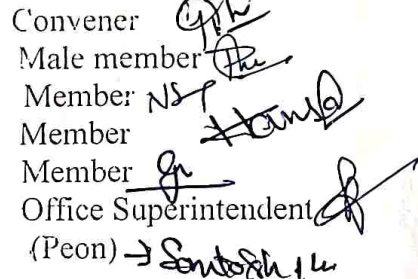 Convener
Male member
Member NS
Member Hansa
Member
Office Superintendent
(Peon) → Santosh